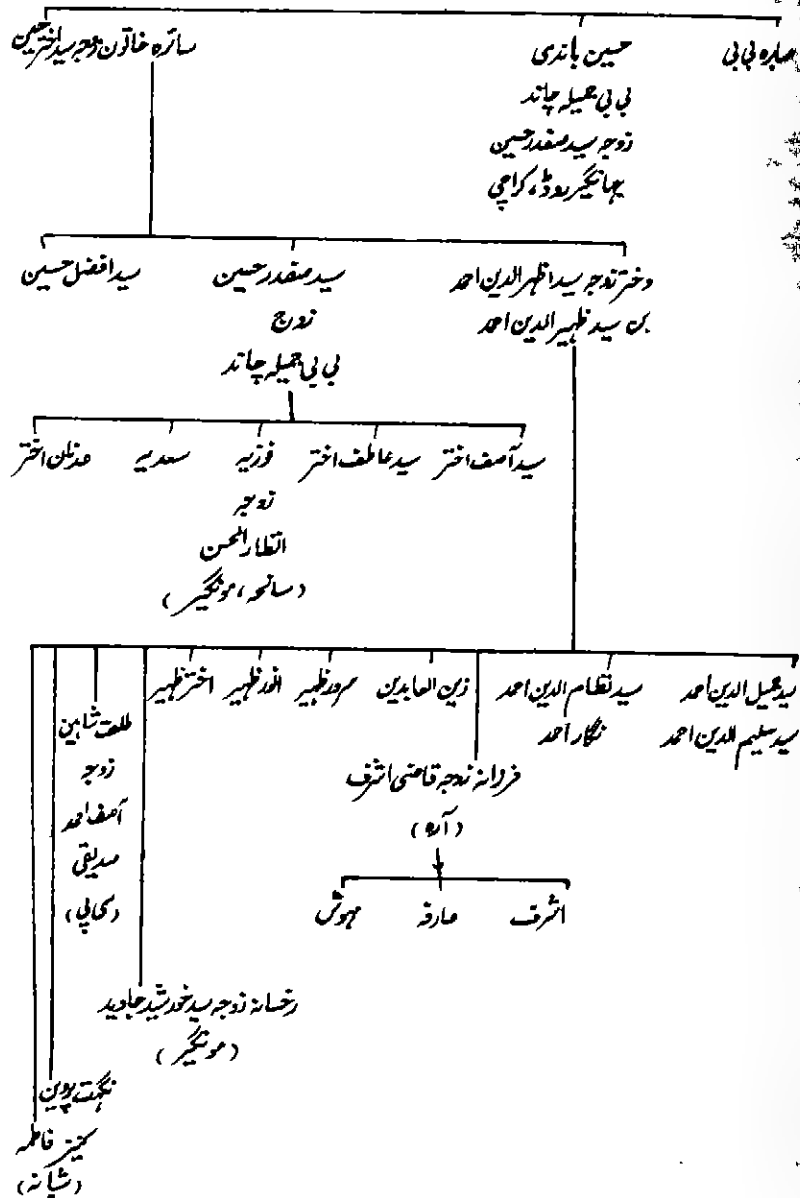 صابرہ بی بی
حسین باندی
بی بی جمیلہ چاند
زوجہ سید صفدر حسین
جہانگیر روڈ، کراچی
سائرہ خاتون زوجہ سید اختر حسین
دختر زوجہ سید اظہر الدین احمد
بن سید ظہیر الدین احمد
سید صفدر حسین
زوج
بی بی جمیلہ چاند
سید افضل حسین
سید آصف اختر
سید عاطف اختر
فوزیہ
زوجہ
انظار الحسن
(سانحہ، مونگیر)
سعدیہ
عدنان اختر
سید جمیل الدین احمد
سید سلیم الدین احمد
سید نظام الدین احمد
نگار احمد
فرزانہ زوجہ قاضی اشرف
(آرہ)
اشرف
عارفہ
مہوش
زین العابدین
سرور ظہیر
انور ظہیر
اختر ظہیر
رخسانہ زوجہ سید خورشید جاوید
(مونگیر)
طلعت شاہین
زوجہ
آصف احمد
صدیقی
نگہت پروین
کنیز فاطمہ
(شبانہ)